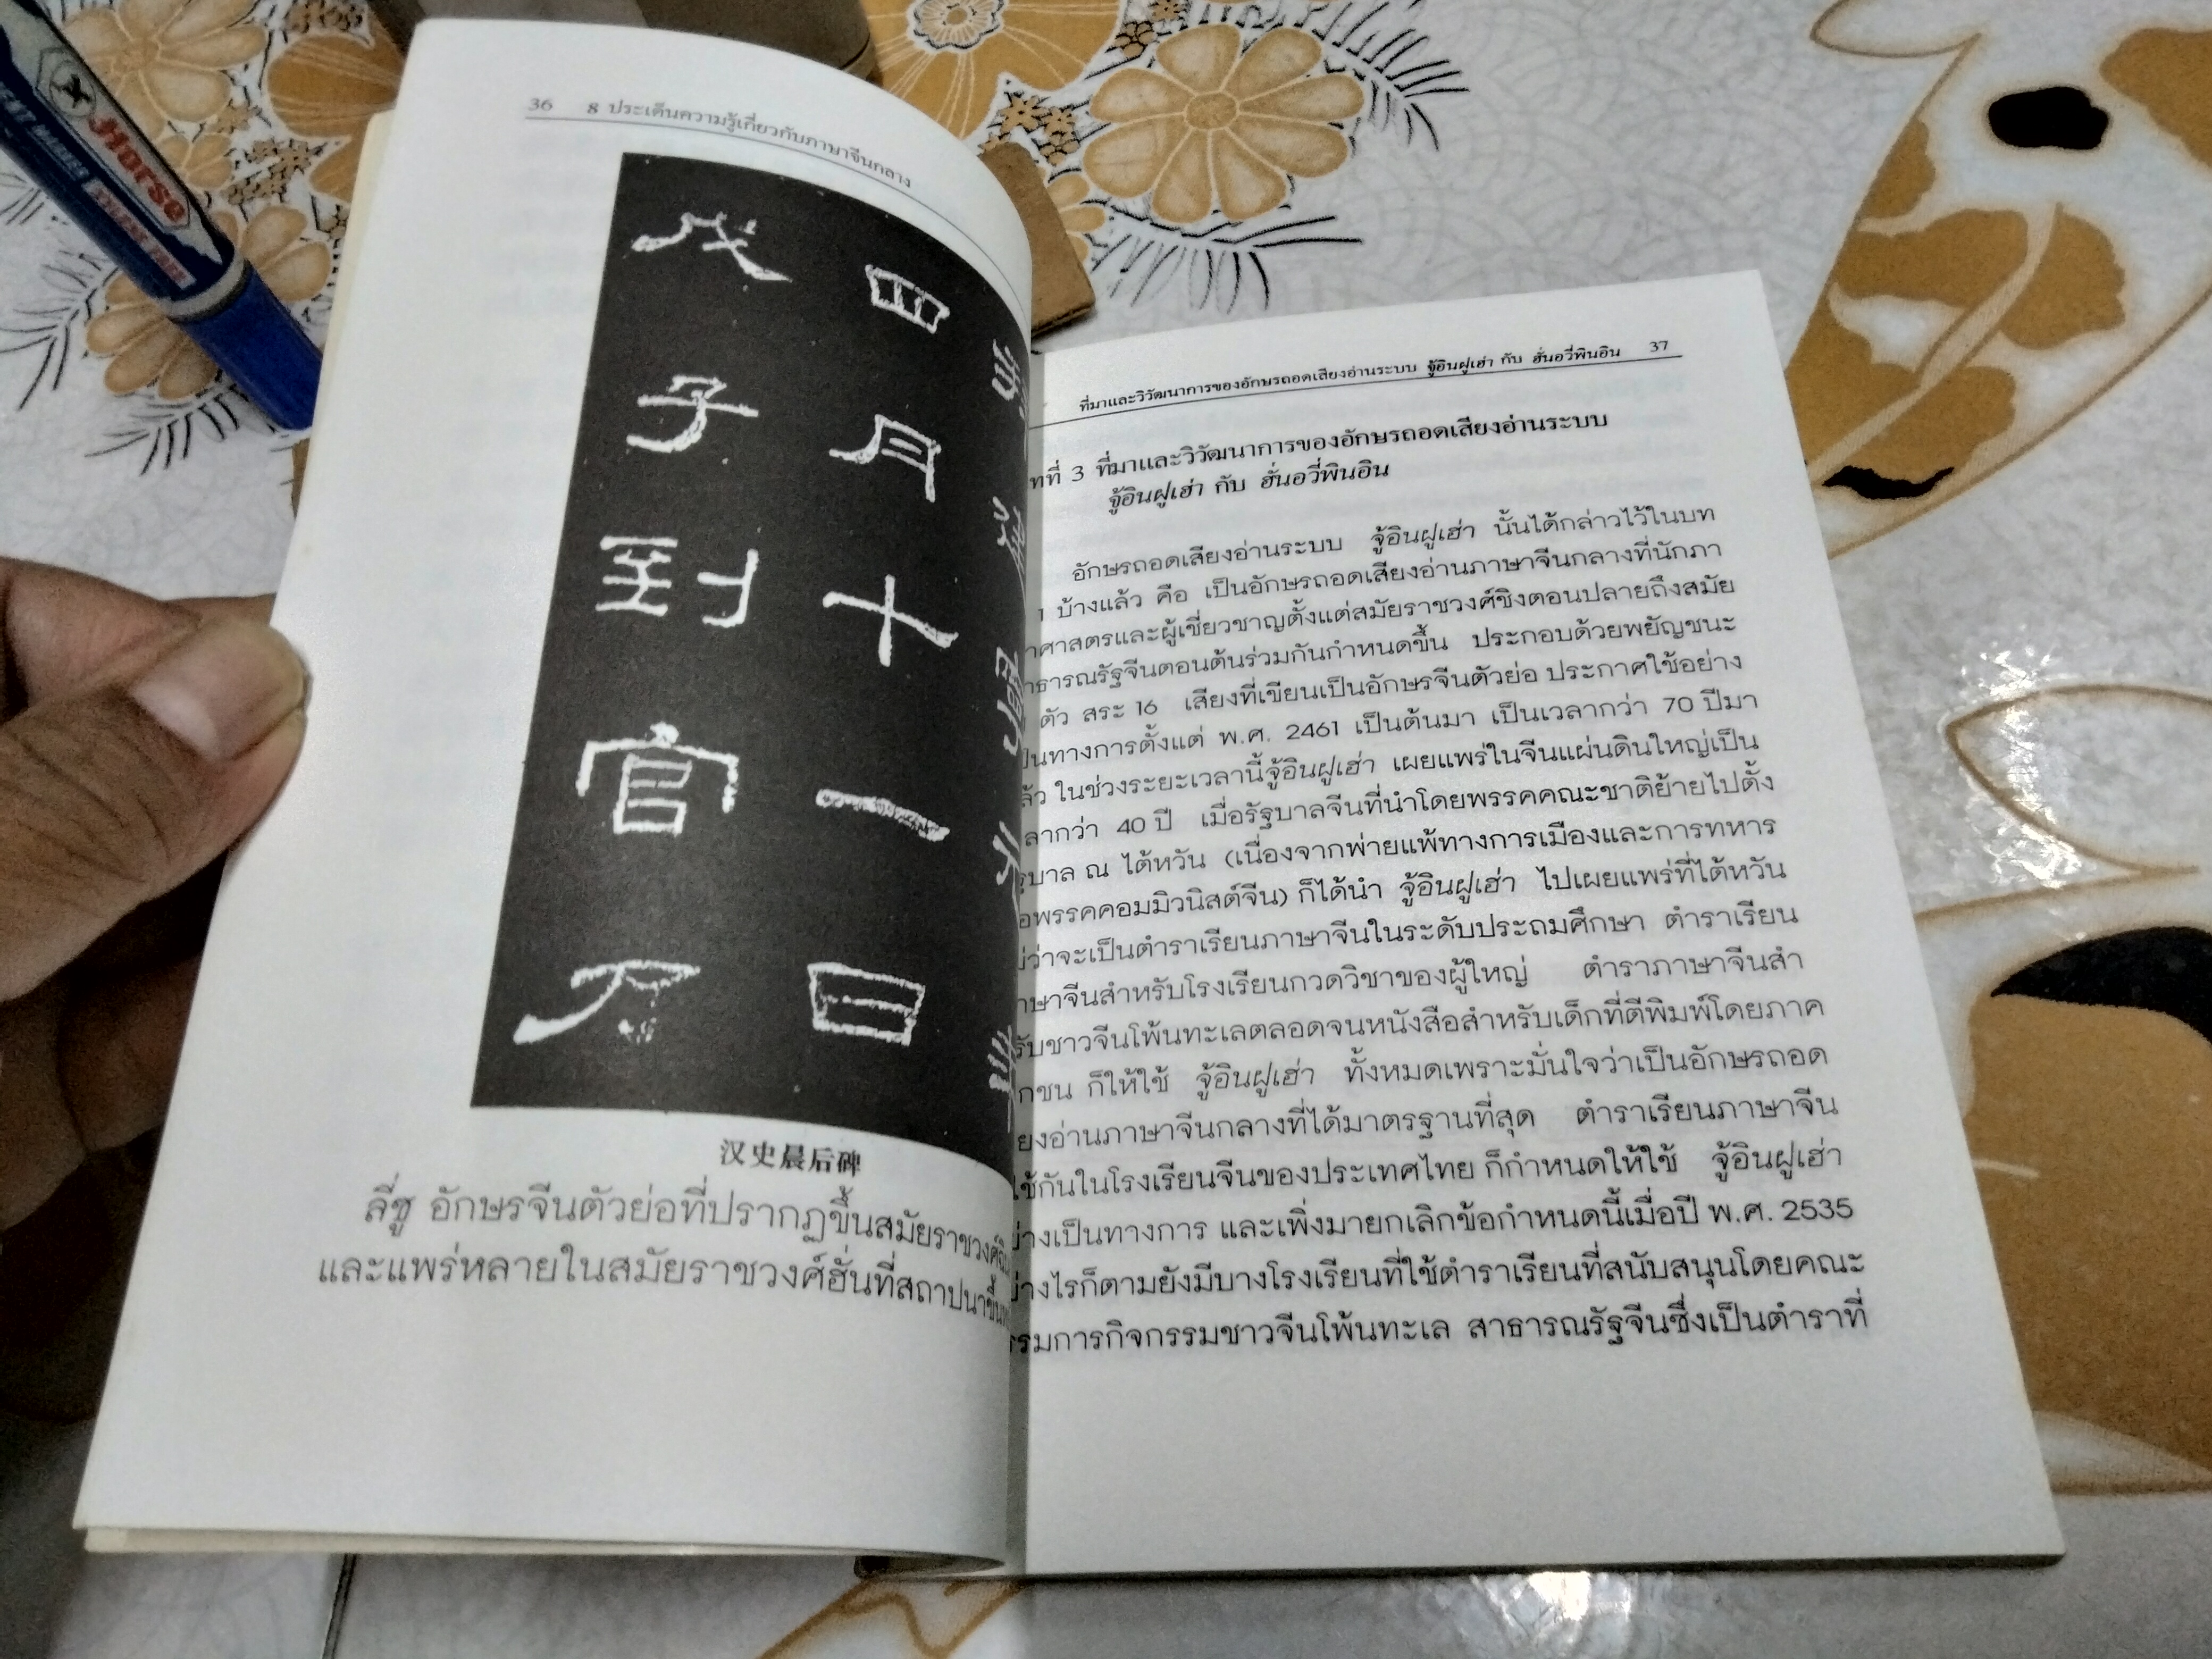 Horse
36 8 ประเด็นความรู้เกี่ยวกับภาษาจีนกลาง
四月十一日
戊子到官
汉史晨后碑
ลี่ซู อักษรจีนตัวย่อที่ปรากฏขึ้นสมัยราชวงศ์ฉิน
และแพร่หลายในสมัยราชวงศ์ฮั่นที่สถาปนาขึ้น
ที่มาและวิวัฒนาการของอักษรถอดเสียงอ่านระบบ จู้อินฝูเฮ่า กับ ฮั่นอวี่พินอิน 37
ทที่ 3 ที่มาและวิวัฒนาการของอักษรถอดเสียงอ่านระบบ
จู้อินฝูเฮ่า กับ ฮั่นอวี่พินอิน
อักษรถอดเสียงอ่านระบบ จู้อินฝูเฮ่า นั้นได้กล่าวไว้ในบท
1 บ้างแล้ว คือ เป็นอักษรถอดเสียงอ่านภาษาจีนกลางที่นักภา
าศาสตรและผู้เชี่ยวชาญตั้งแต่สมัยราชวงศ์ชิงตอนปลายถึงสมัย
าธารณรัฐจีนตอนต้นร่วมกันกำหนดขึ้น ประกอบด้วยพยัญชนะ
ตัว สระ 16 เสียงที่เขียนเป็นอักษรจีนตัวย่อ ประกาศใช้อย่าง
ป็นทางการตั้งแต่ พ.ศ. 2461 เป็นต้นมา เป็นเวลากว่า 70 ปีมา
ล้ว ในช่วงระยะเวลานี้จู้อินฝูเฮ่า เผยแพร่ในจีนแผ่นดินใหญ่เป็น
ลากว่า 40 ปี เมื่อรัฐบาลจีนที่นำโดยพรรคคณะชาติย้ายไปตั้ง
รบาล ณ ไต้หวัน (เนื่องจากพ่ายแพ้ทางการเมืองและการทหาร
อพรรคคอมมิวนิสต์จีน) ก็ได้นำ จู้อินฝูเฮ่า ไปเผยแพร่ที่ไต้หวัน
ม่ว่าจะเป็นตำราเรียนภาษาจีนในระดับประถมศึกษา ตำราเรียน
าษาจีนสำหรับโรงเรียนกวดวิชาของผู้ใหญ่ ตำราภาษาจีนสำ
รับชาวจีนโพ้นทะเลตลอดจนหนังสือสำหรับเด็กที่ตีพิมพ์โดยภาค
กชน ก็ให้ใช้ จู้อินฝูเฮ่า ทั้งหมดเพราะมั่นใจว่าเป็นอักษรถอด
ยงอ่านภาษาจีนกลางที่ได้มาตรฐานที่สุด ตำราเรียนภาษาจีน
ใช้กันในโรงเรียนจีนของประเทศไทย ก็กำหนดให้ใช้ จู้อินฝูเฮ่า
ย่างเป็นทางการ และเพิ่งมายกเลิกข้อกำหนดนี้เมื่อปี พ.ศ. 2535
ย่างไรก็ตามยังมีบางโรงเรียนที่ใช้ตำราเรียนที่สนับสนุนโดยคณะ
รรมการกิจกรรมชาวจีนโพ้นทะเล สาธารณรัฐจีนซึ่งเป็นตำราที่